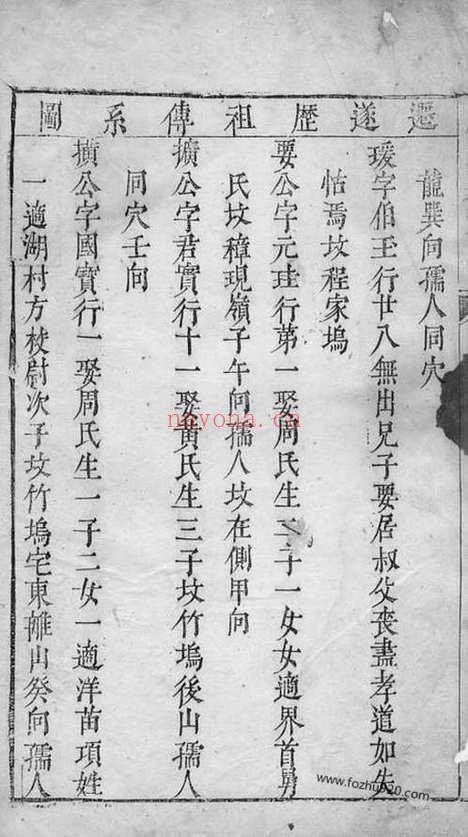 遷遂歷祖傳系圖
龍巽向孺人同穴
瑗字伯玉行廿八無出兄子要居叔父喪盡孝道如失
怙焉坟程家塢
要公字元珪行第一娶周氏生二子一女女適界首舅
氏坟樟現嶺子午向孺人坟在側甲向
擴公字君實行十一娶黃氏生三子坟竹塢後山孺人
同穴壬向
擴公字國實行一娶周氏生一子二女一適洋苗項姓
一適湖村方校尉次子坟竹塢宅東離山癸向孺人
nayona.cn
www.fozhu920.com